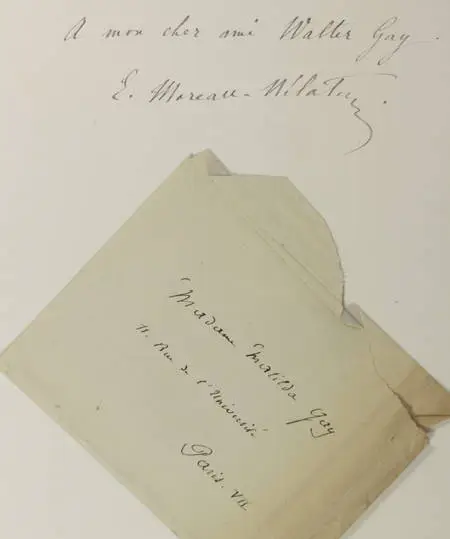 A mon cher ami Walter Gay.
E. Moreau-Nélaton.
Madame Matilda Gay
11. Rue de l'Université.
Paris. VII.